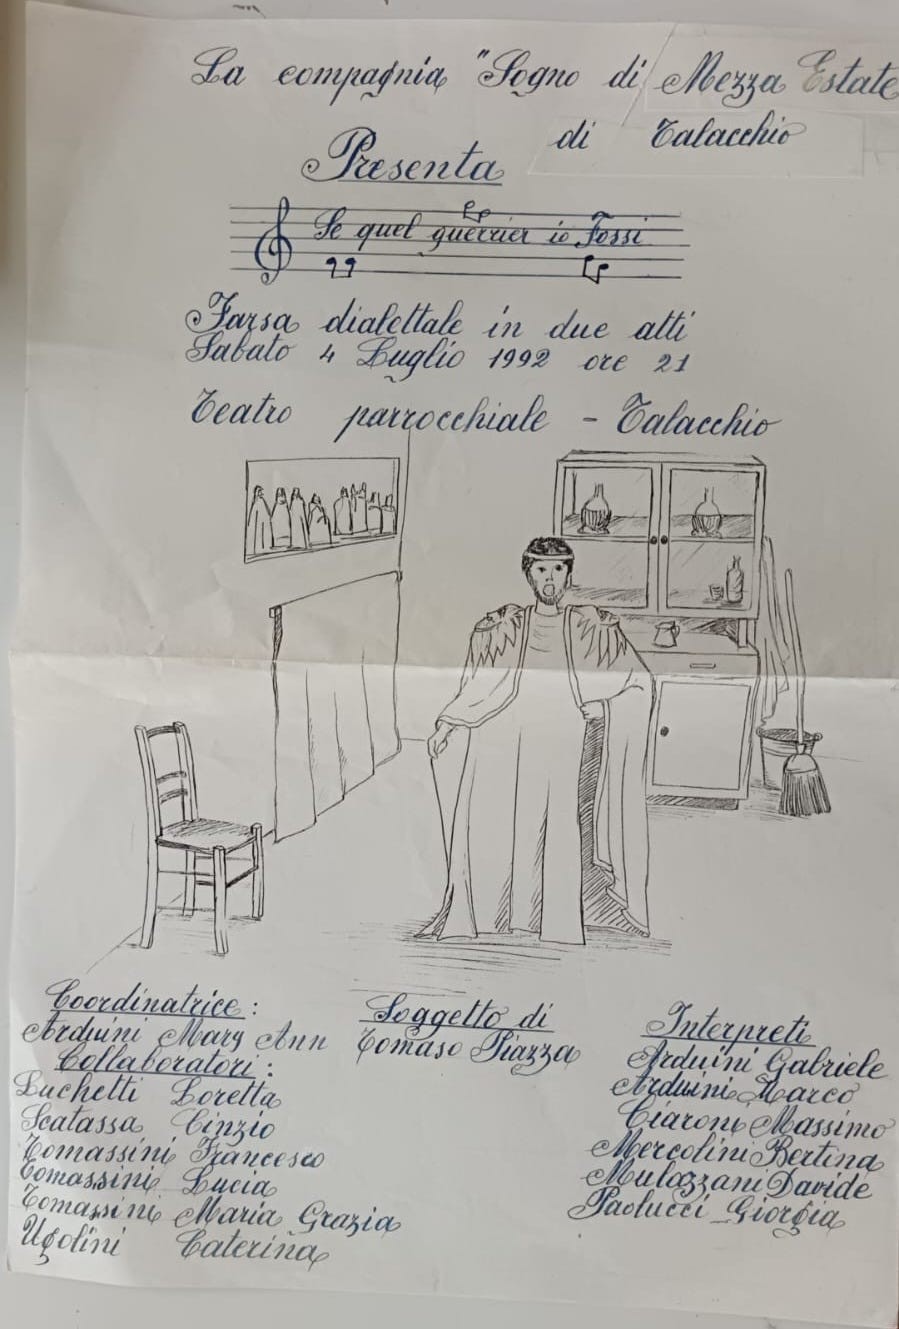 La compagnia "Sogno di Mezza Estate
di Talacchio
Presenta
Se quel guerrier io Fossi
Farsa dialettale in due atti
Sabato 4 Luglio 1992 ore 21
Teatro parrocchiale - Talacchio
Coordinatrice:
Arduini Mary Ann
Collaboratori:
Luchetti Loretta
Scatassa Cinzio
Tomassini Francesco
Tomassini Lucia
Tomassini Maria Grazia
Ugolini Caterina
Soggetto di
Tomaso Piazza
Interpreti
Arduini Gabriele
Arduini Marco
Ciaroni Massimo
Mercolini Bertina
Mulazzani Davide
Paolucci Giorgia